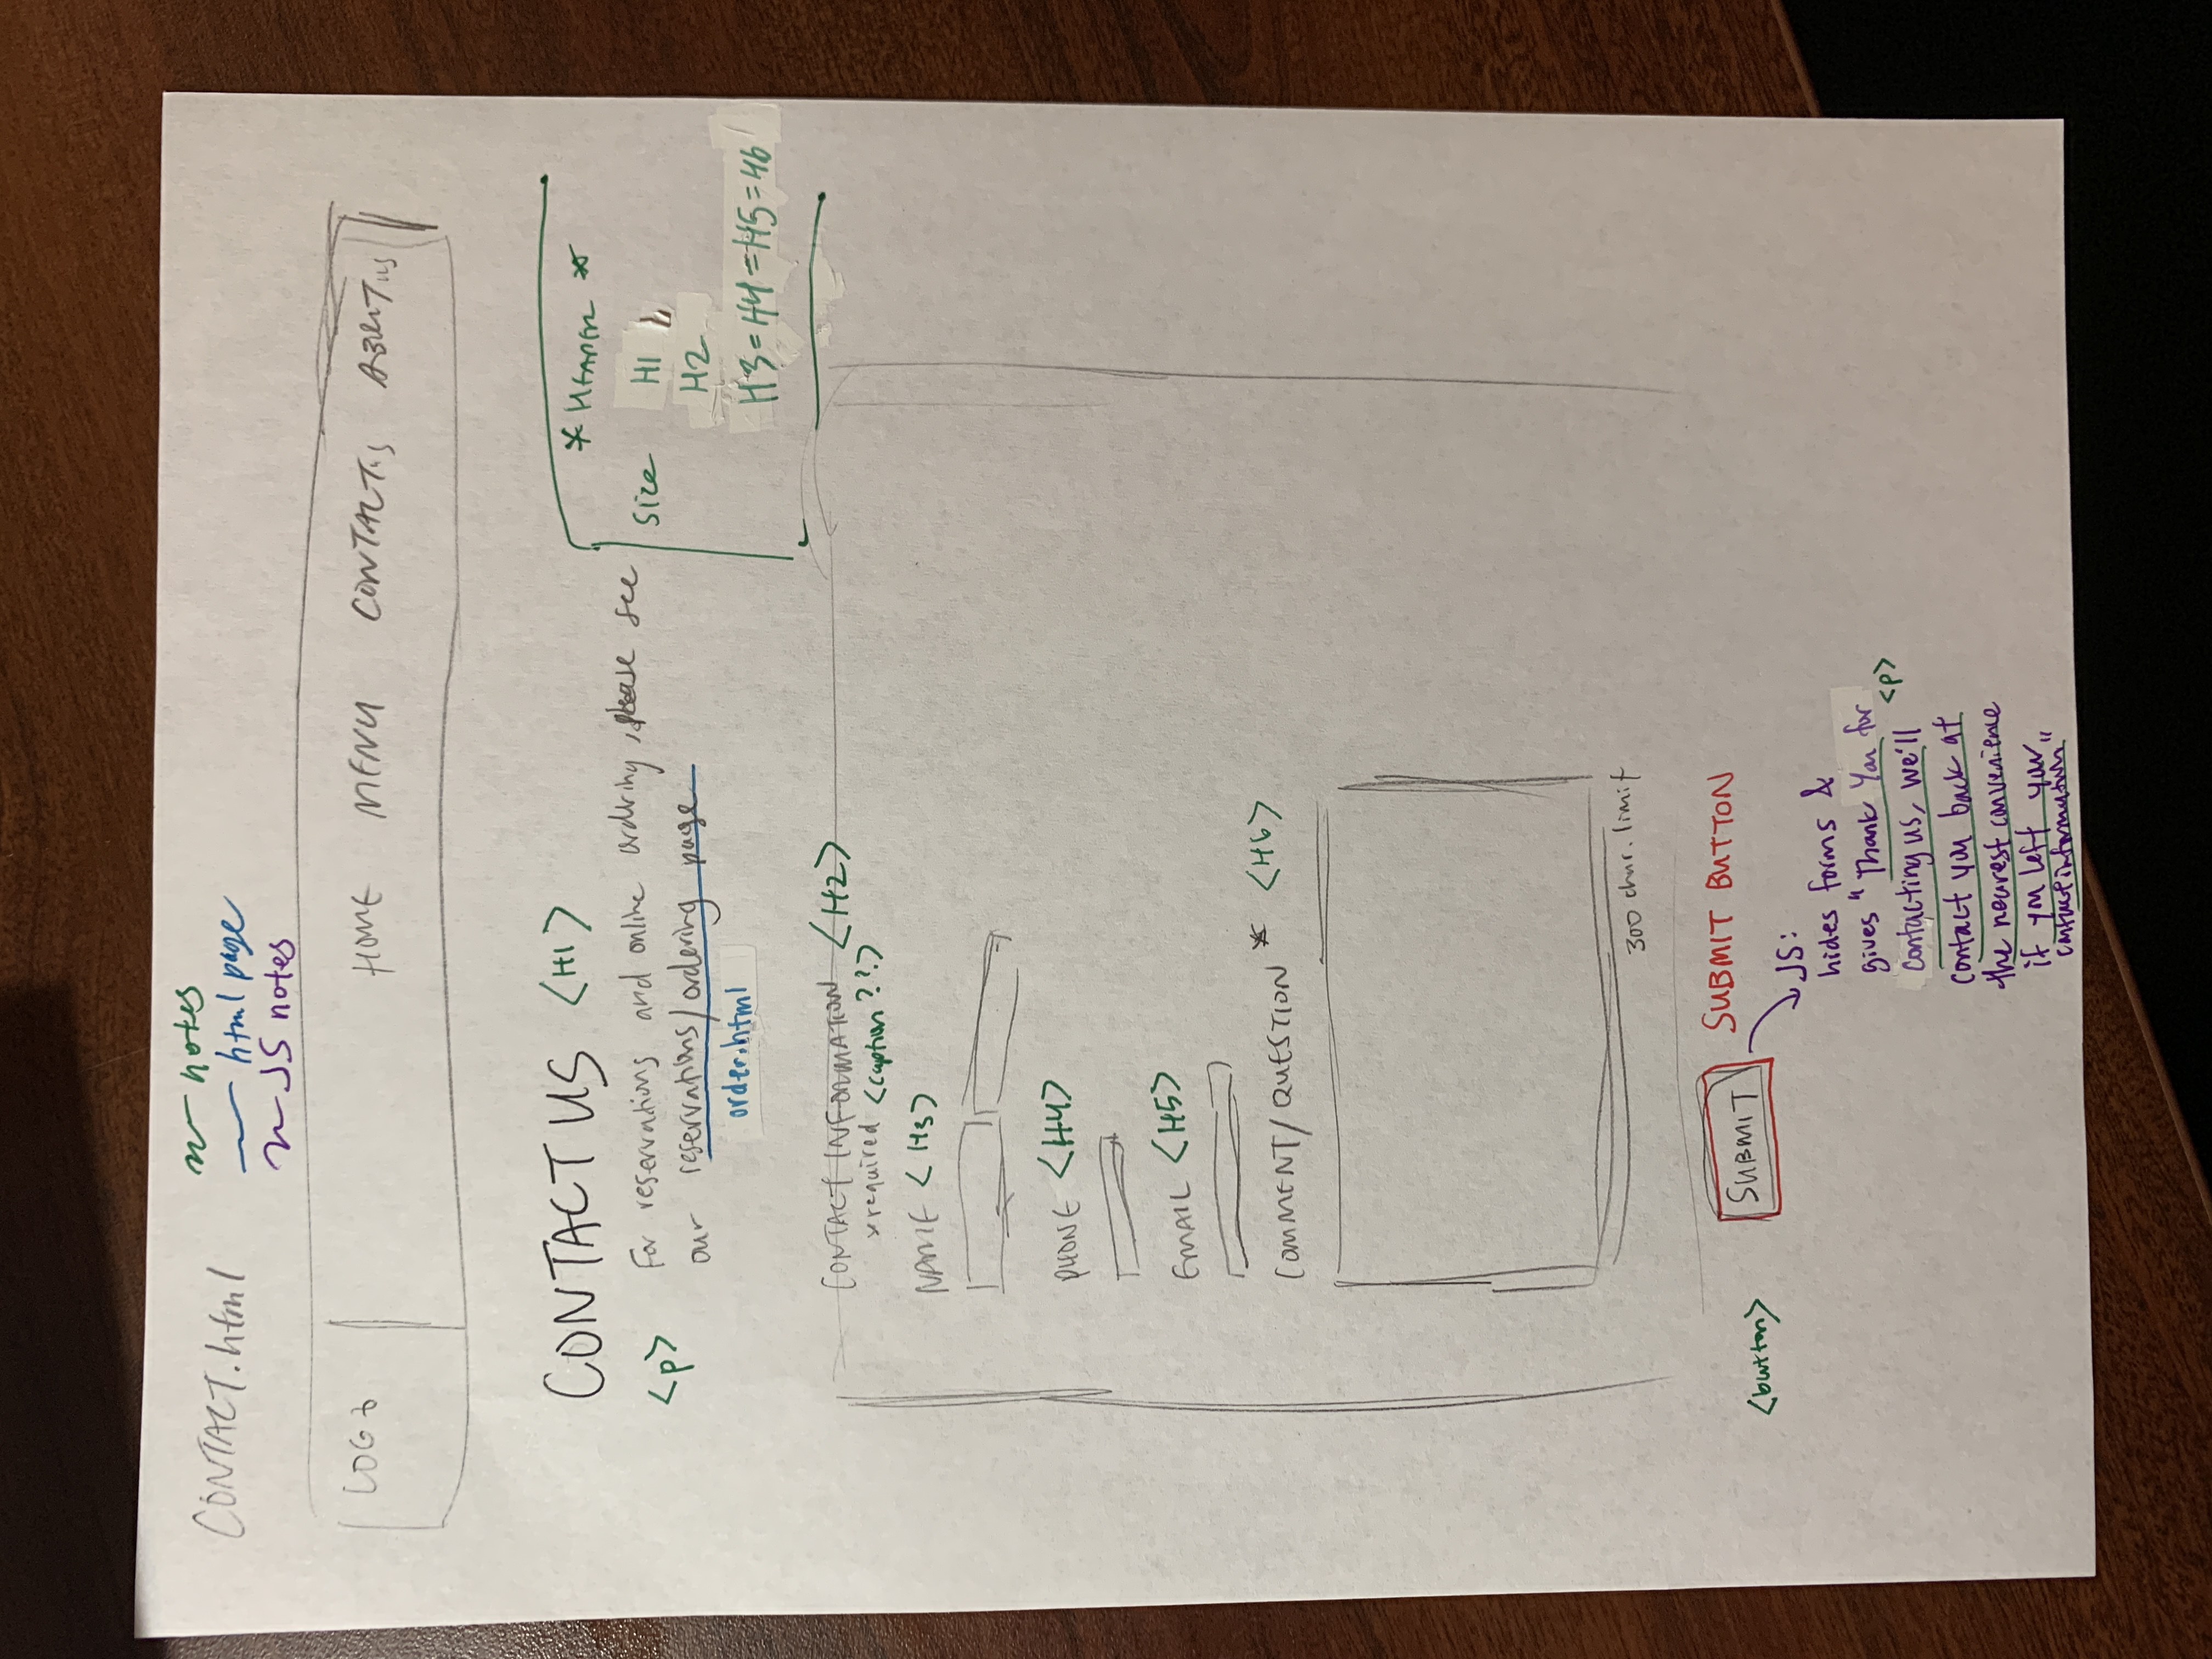 CONTACT.html
notes
html page
JS notes
LOGO
HOME MENU CONTACT us ABOUT us
CONTACT US <H1>
<p> For reservations and online ordering, please see
our reservations/ordering page
order.html
* HEADER *
size H1
H2
H3=H4=H5=H6
CONTACT INFORMATION <H2>
*required <caption??>
NAME <H3>
PHONE <H4>
EMAIL <H5>
COMMENT/QUESTION * <H6>
300 char. limit
<button> SUBMIT SUBMIT BUTTON
JS:
hides forms &
gives "Thank You for
contacting us, we'll <p>
contact you back at
the nearest convenience
if you left your
contact information"